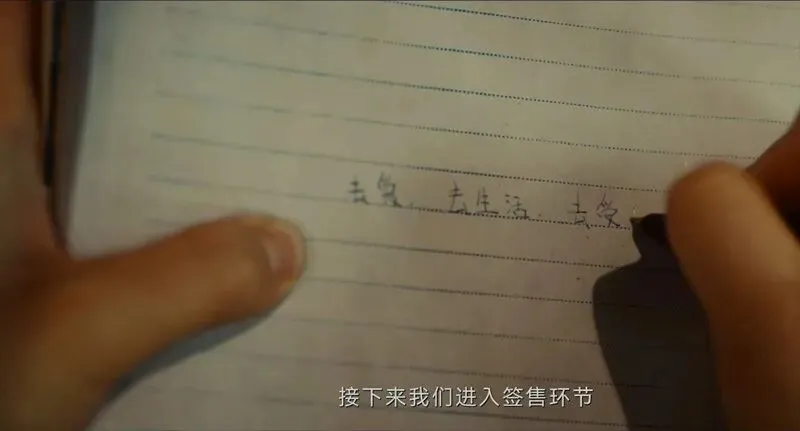 去爱、去生活、去受
接下来我们进入签售环节